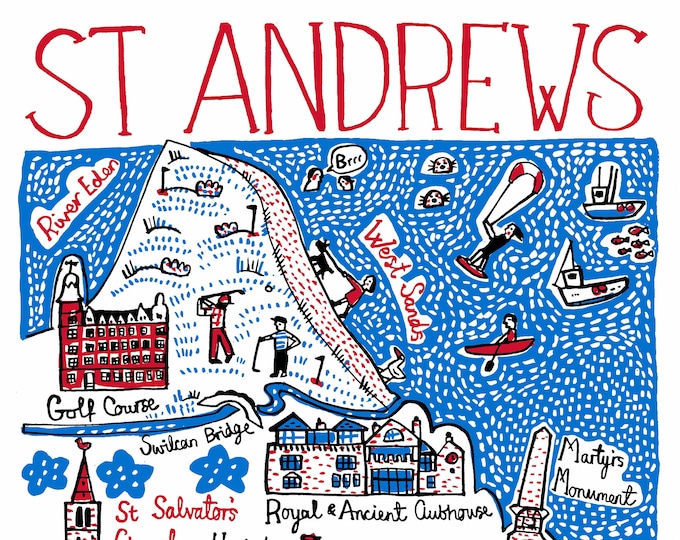 ST ANDREWS
Brrr
River Eden
West Sands
Golf Course
Swilcan Bridge
Martyrs
Monument
St Salvator's
Royal & Ancient Clubhouse